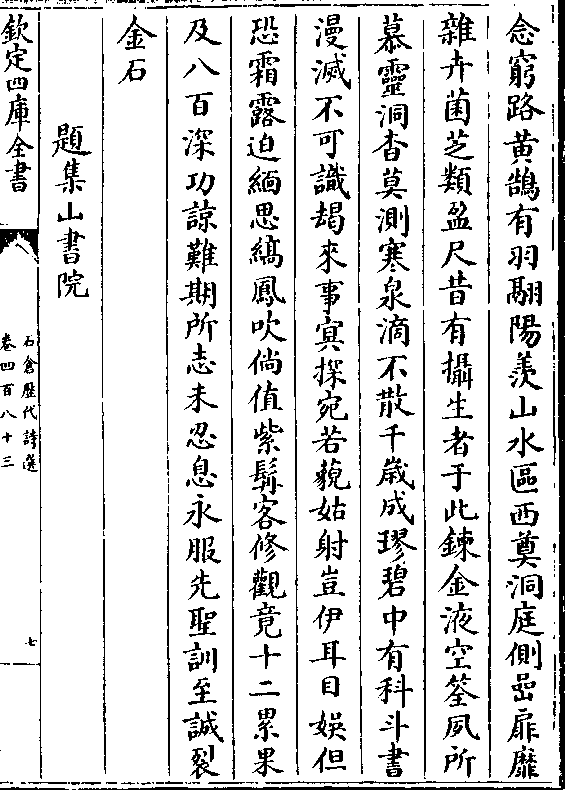 念窮路黄鵠有羽翮陽羨山水區西奠洞庭側嵒扉靡
雜卉菌芝類盈尺昔有攝生者于此鍊金液空筌夙所
慕靈洞杳莫測寒泉滴不散千歲成璆碧中有科斗書
漫滅不可識朅來事㝠探宛若藐姑射豈伊耳目娛但
恐霜露迫緬思緱鳳吹倘值紫髯客修觀竟十二累果
及八百深功諒難期所志未忍息永服先聖訓至誠裂
金石
題集山書院
欽定四庫全書
石倉歴代詩選
卷四百八十三
七